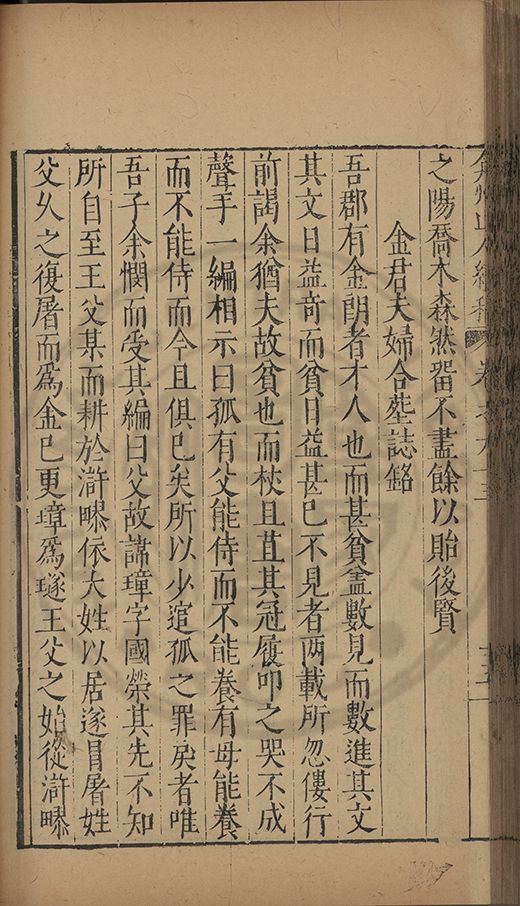 弇州山人續稿 卷之九十三 十五
之陽喬木森然留不盡餘以貽後賢
金君夫婦合葬誌銘
吾郡有金朗者才人也而甚貧盖數見而數進其文
其文日益奇而貧日益甚已不見者两載所忽僂行
前謁余猶夫故貧也而杖且苴其冠履叩之哭不成
聲手一編相示曰孤有父能侍而不能養有母能養
而不能侍而今且俱已矣所以少逭孤之罪戾者唯
吾子余憫而受其編曰父故諱璋字國榮其先不知
所自至王父某而耕於滸𡐛依大姓以居遂冒屠姓
父久之復屠而爲金已更璋爲璲王父之始從滸𡐛